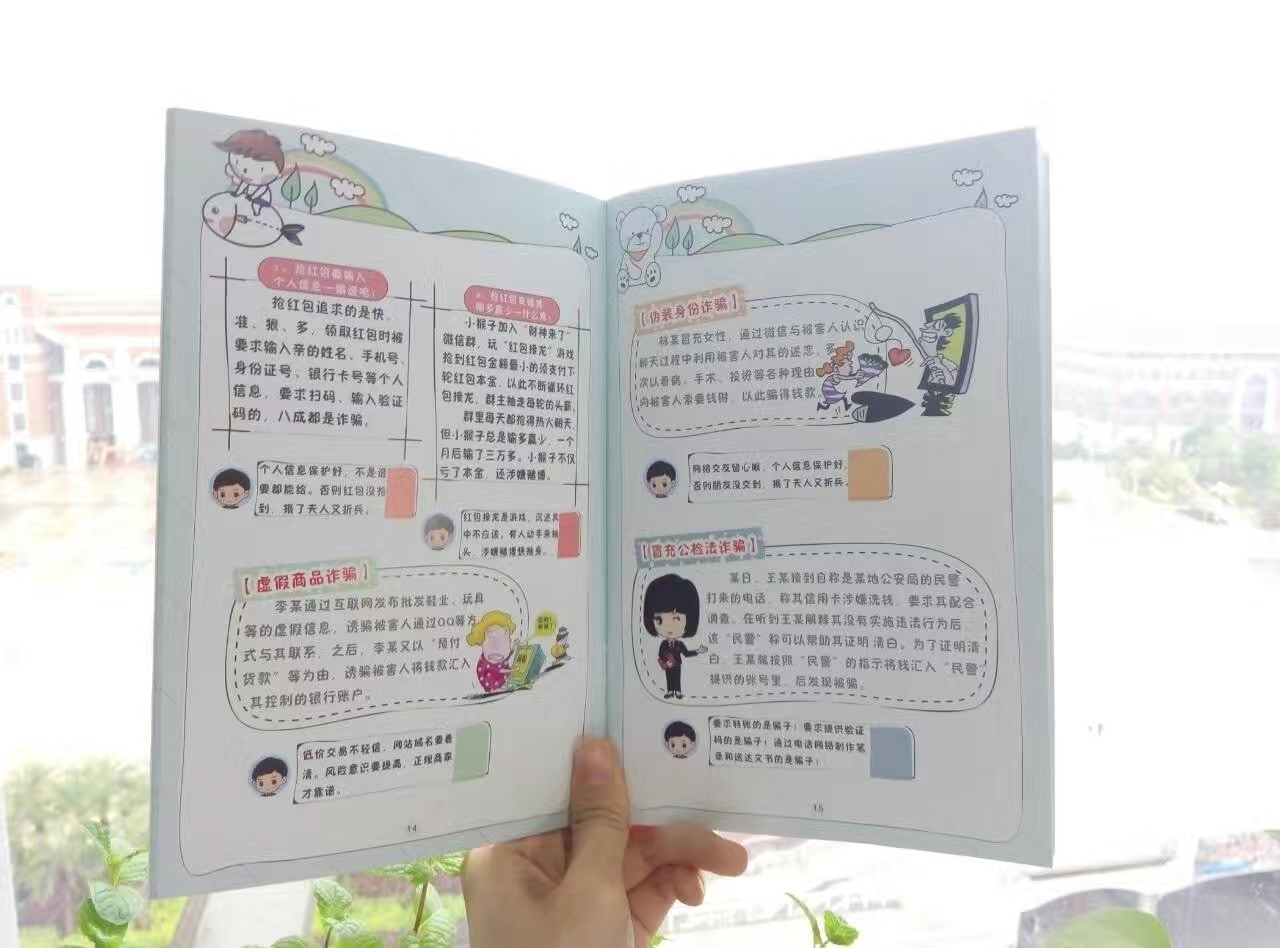 3、抢红包要输入
个人信息—瞎说呢!
抢红包追求的是快、
准、狠、多，领取红包时被
要求输入亲的姓名、手机号、
身份证号、银行卡号等个人
信息，要求扫码、输入验证
码的，八成都是诈骗。
个人信息保护好，不是谁
要都能给。否则红包没抢
到，损了夫人又折兵。
抢红包变赌博
输多赢少—什么鬼!
小猴子加入“财神来了”
微信群，玩“红包接龙”游戏
抢到红包金额最小的须支付下
轮红包本金，以此不断循环红
包接龙，群主抽走每轮的头薪。
群里每天都抢得热火朝天，
但小猴子总是输多赢少，一个
月后输了三万多。小猴子不仅
亏了本金，还涉嫌赌博。
红包接龙是游戏，沉迷其
中不应该，有人动手来抽
头，涉嫌赌博快抽身。
【虚假商品诈骗】
李某通过互联网发布批发鞋业、玩具
等的虚假信息，诱骗被害人通过QQ等方
式与其联系，之后，李某又以“预付
贷款”等为由，诱骗被害人将钱款汇入
其控制的银行账户。
低价交易不轻信，网站域名要看
清。风险意识要提高，正规商家
才靠谱。
14
【伪装身份诈骗】
林某冒充女性，通过微信与被害人认识
聊天过程中利用被害人对其的迷恋，多
次以看病、手术、投资等各种理由
向被害人索要钱财，以此骗得钱款。
网络交友留心眼，个人信息保护好，
否则朋友没交到，损了夫人又折兵。
【冒充公检法诈骗】
某日，王某接到自称是某地公安局的民警
打来的电话，称其信用卡涉嫌洗钱，要求其配合
调查。在听到王某解释其没有实施违法行为后，
该“民警”称可以帮助其证明清白。为了证明清
白，王某就按照“民警”的指示将钱汇入“民警”
提供的账号里，后发现被骗。
要求转账的是骗子！要求提供验证
码的是骗子！通过电话网络制作笔
录和送达文书的是骗子！
15